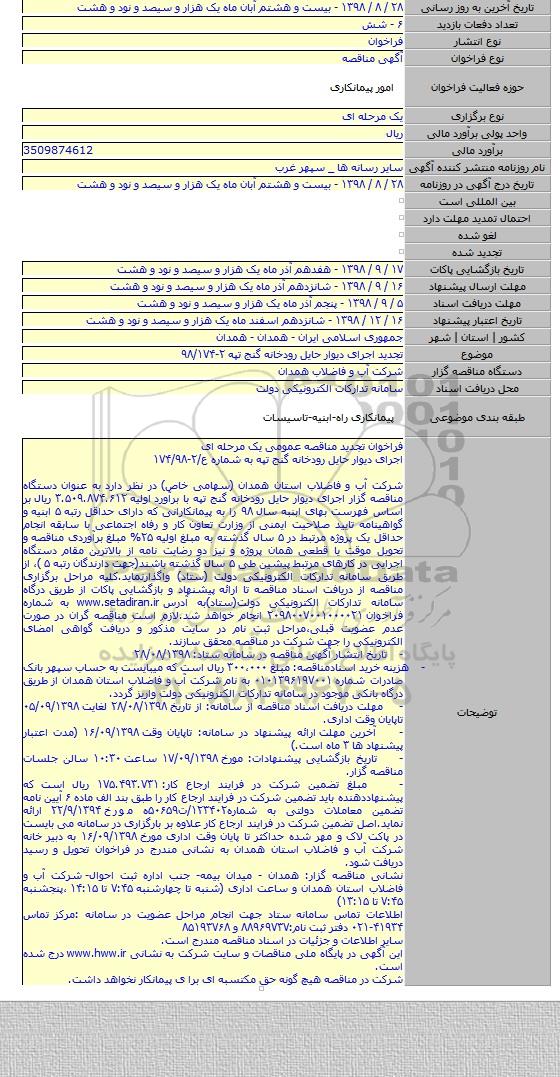 تاریخ آخرین به روز رسانی ۲۸ / ۸ / ۱۳۹۸ - بیست و هشتم آبان ماه یک هزار و سیصد و نود و هشت
تعداد دفعات بازدید ۶ - شش
نوع انتشار فراخوان
نوع فراخوان آگهی مناقصه
حوزه فعالیت فراخوان امور پیمانکاری
نوع برگزاری یک مرحله ای
واحد پولی برآورد مالی ریال
برآورد مالی 3509874612
نام روزنامه منتشر کننده آگهی سایر رسانه ها _ سپهر غرب
تاریخ درج آگهی در روزنامه ۲۸ / ۸ / ۱۳۹۸ - بیست و هشتم آبان ماه یک هزار و سیصد و نود و هشت
بین المللی است
احتمال تمدید مهلت دارد
لغو شده
تجدید شده
تاریخ بازگشایی پاکات ۱۷ / ۹ / ۱۳۹۸ - هفدهم آذر ماه یک هزار و سیصد و نود و هشت
مهلت ارسال پیشنهاد ۱۶ / ۹ / ۱۳۹۸ - شانزدهم آذر ماه یک هزار و سیصد و نود و هشت
مهلت دریافت اسناد ۵ / ۹ / ۱۳۹۸ - پنجم آذر ماه یک هزار و سیصد و نود و هشت
تاریخ اعتبار پیشنهاد ۱۶ / ۱۲ / ۱۳۹۸ - شانزدهم اسفند ماه یک هزار و سیصد و نود و هشت
کشور | استان | شهر جمهوری اسلامی ایران - همدان - همدان
موضوع تجدید اجرای دیوار حایل رودخانه گنج تپه ۲-۹۸/۱۷۴
دستگاه مناقصه گزار شرکت آب و فاضلاب همدان
محل دریافت اسناد سامانه تدارکات الکترونیکی دولت
طبقه بندی موضوعی پیمانکاری راه-ابنیه-تاسیسات
توضیحات
فراخوان تجدید مناقصه عمومی یک مرحله ای
اجرای دیوار حایل رودخانه گنج تپه به شماره ع/۲-۱۷۴/۹۸
شرکت آب و فاضلاب استان همدان (سهامی خاص) در نظر دارد به عنوان دستگاه
مناقصه گزار اجرای دیوار حایل رودخانه گنج تپه با برآورد اولیه ۳.۵۰۹.۸۷۴.۶۱۲ ریال بر
اساس فهرست بهای ابنیه سال ۹۸ را به پیمانکارانی که دارای حداقل رتبه ۵ ابنیه و
گواهینامه تایید صلاحیت ایمنی از وزارت تعاون کار و رفاه اجتماعی با سابقه انجام
حداقل یک پروژه مرتبط در ۵ سال گذشته به مبلغ اولیه ۲۵% مبلغ برآوردی مناقصه و
تحویل موقت یا قطعی همان پروژه و نیز دو رضایت نامه از بالاترین مقام دستگاه
اجرایی در کارهای مرتبط پیشین طی ۵ سال گذشته باشند(جهت دارندگان رتبه ۵ )، از
طریق سامانه تدارکات الکترونیکی دولت (ستاد) واگذارنماید.کلیه مراحل برگزاری
مناقصه از دریافت اسناد مناقصه تا ارائه پیشنهاد و بازگشایی پاکات از طریق درگاه
سامانه تدارکات الکترونیکی دولت(ستاد)به آدرس www.setadiran.ir به شماره
فراخوان ۲۰۹۸۰۰۷۰۰۱۰۰۰۰۲۱ انجام خواهد شد.لازم است مناقصه گران در صورت
عدم عضویت قبلی،مراحل ثبت نام در سایت مذکور و دریافت گواهی امضای
الکترونیکی را جهت شرکت در مناقصه محقق سازند.
- تاریخ انتشار آگهی مناقصه در سامانه ستاد: ۲۸/۰۸/۱۳۹۸
- هزینه خرید اسنادمناقصه: مبلغ ۳۰۰،۰۰۰ ریال است که میبایست به حساب سپهر بانک
صادرات شماره ۰۱۰۱۳۹۶۱۹۷۰۰۱ به نام شرکت آب و فاضلاب استان همدان از طریق
درگاه بانکی موجود در سامانه تدارکات الکترونیکی دولت واریز گردد.
- مهلت دریافت اسناد مناقصه از سامانه: از تاریخ ۲۸/۰۸/۱۳۹۸ لغایت ۰۵/۰۹/۱۳۹۸
تاپایان وقت اداری.
- آخرین مهلت ارائه پیشنهاد در سامانه: تاپایان وقت ۱۶/۰۹/۱۳۹۸ (مدت اعتبار
پیشنهاد ها ۳ ماه است.)
- تاریخ بازگشایی پیشنهادات: مورخ ۱۷/۰۹/۱۳۹۸ ساعت ۱۰:۳۰ سالن جلسات
مناقصه گزار.
- مبلغ تضمین شرکت در فرایند ارجاع کار: ۱۷۵.۴۹۳.۷۳۱ ریال است که
پیشنهاددهنده باید تضمین شرکت در فرایند ارجاع کار را طبق بند الف ماده ۶ آیین نامه
تضمین معاملات دولتی به شماره۱۲۳۴۰۲/ت۵۰۶۵۹ه مورخ ۲۲/۹/۱۳۹۴ ارائه
نماید.اصل تضمین شرکت در فرایند ارجاع کار علاوه بر بارگزاری در سامانه می بایست
در پاکت لاک و مهر شده حداکثر تا پایان وقت اداری مورخ ۱۶/۰۹/۱۳۹۸ به دبیر خانه
شرکت آب و فاضلاب استان همدان به نشانی مندرج در فراخوان تحویل و رسید
دریافت شود.
نشانی مناقصه گزار: همدان - میدان بیمه- جنب اداره ثبت احوال- شرکت آب و
فاضلاب استان همدان و ساعت اداری (شنبه تا چهارشنبه ۷:۴۵ تا ۱۴:۱۵ ،پنجشنبه
۷:۴۵ تا ۱۳:۱۵)
اطلاعات تماس سامانه ستاد جهت انجام مراحل عضویت در سامانه :مرکز تماس
۰۲۱-۴۱۹۳۴ دفتر ثبت نام:۸۸۹۶۹۷۳۷ و ۸۵۱۹۳۷۶۸
سایر اطلاعات و جزئیات در اسناد مناقصه مندرج است.
این آگهی در پایگاه ملی مناقصات و سایت شرکت به نشانی www.hww.ir درج شده
است.
شرکت در مناقصه هیچ گونه حق مکتسبه ای برا ی پیمانکار نخواهد داشت.